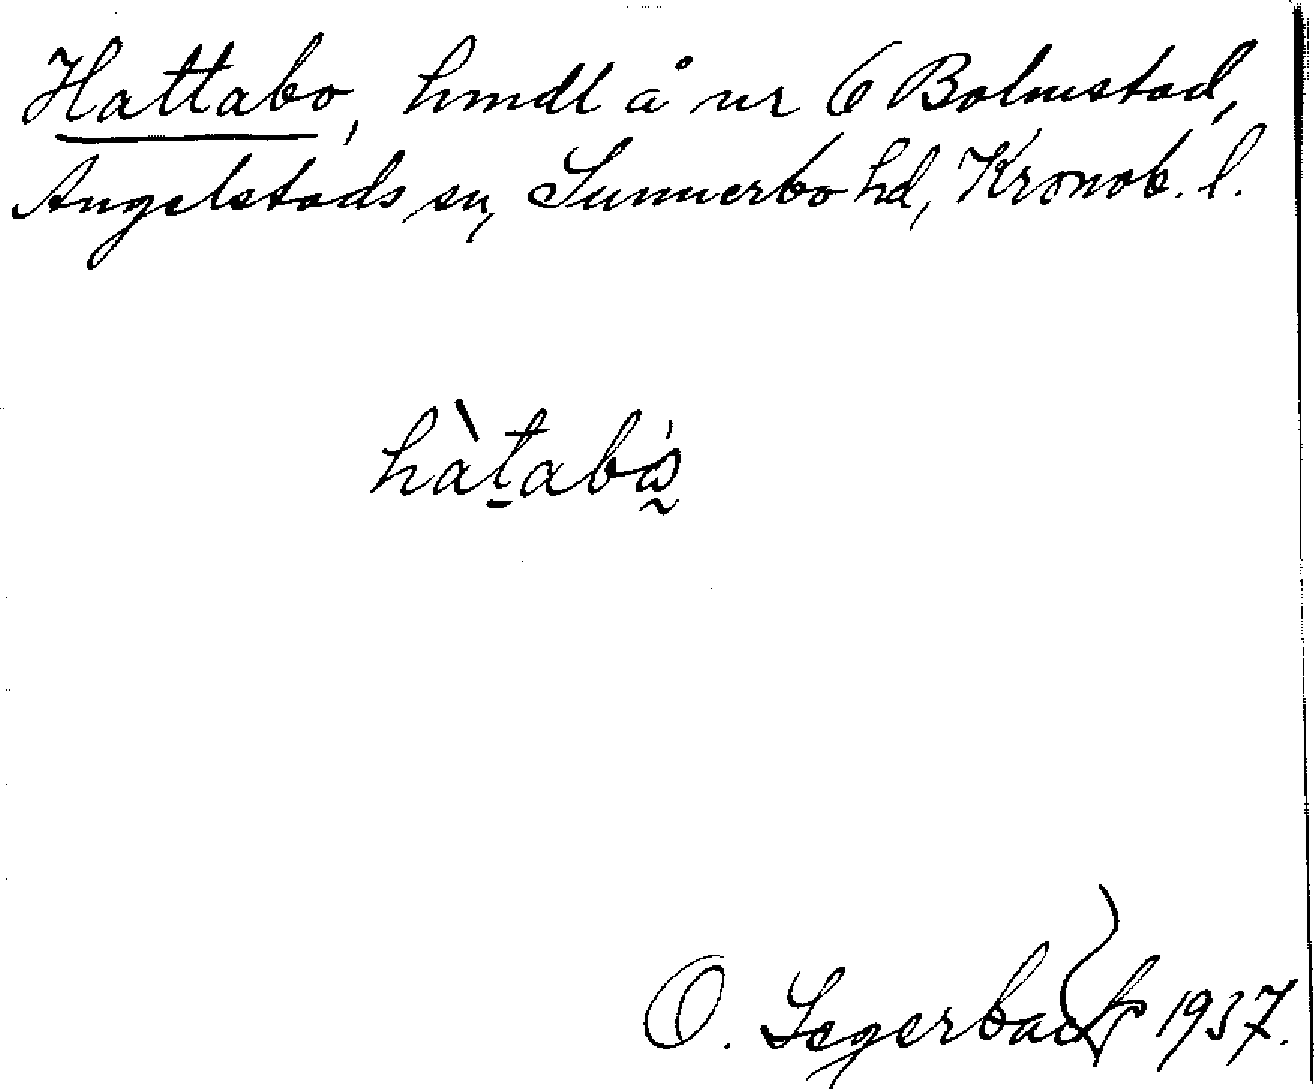 Hattabo, hmdl å nr 6 Bolmstad,
Angelstads sn, Sunnerbo hd, Kronob. l.
O. Segerback 1937.